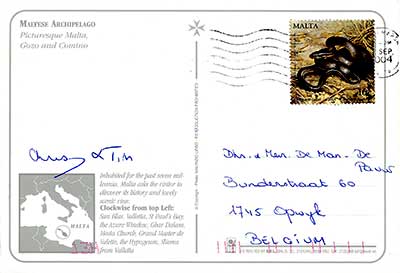 MALTESE ARCHIPELAGO
Picturesque Malta,
Gozo and Comino
MALTA
SEP
2004
Dhr. & Mev. De Man - De
Pauw
Bundertraat 60
1745 Opwijk
BELGIUM
& Tim
MALTA
Inhabited for the past seven mil-
lennia, Malta asks the visitor to
discover its history and lovely
scenic view.
Clockwise from top Left:
San Blas, Valletta, St Paul's Bay,
the Azure Window, Ghar Dalam,
Mosta Church, Grand Master de
Valette, the Hypogeum, Sliema
from Valletta